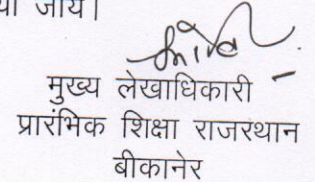 जाये।
मुख्य लेखाधिकारी
प्रारंभिक शिक्षा राजस्थान
बीकानेर